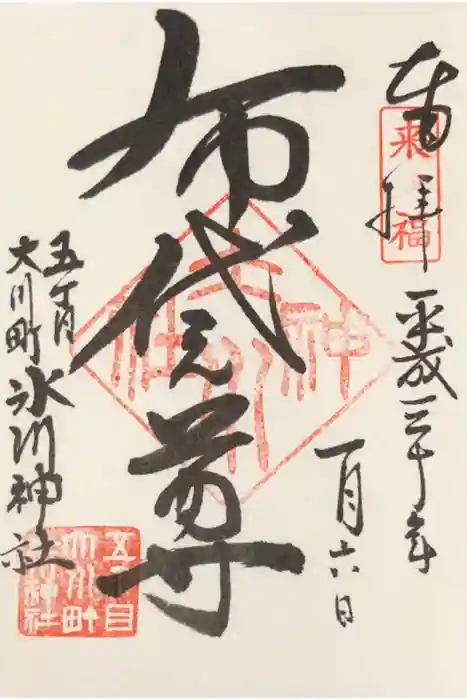 奉拝
来福
平成三十年
一月六日
布袋尊
氷川神社
五丁目
大川町氷川神社
五丁目
大川町